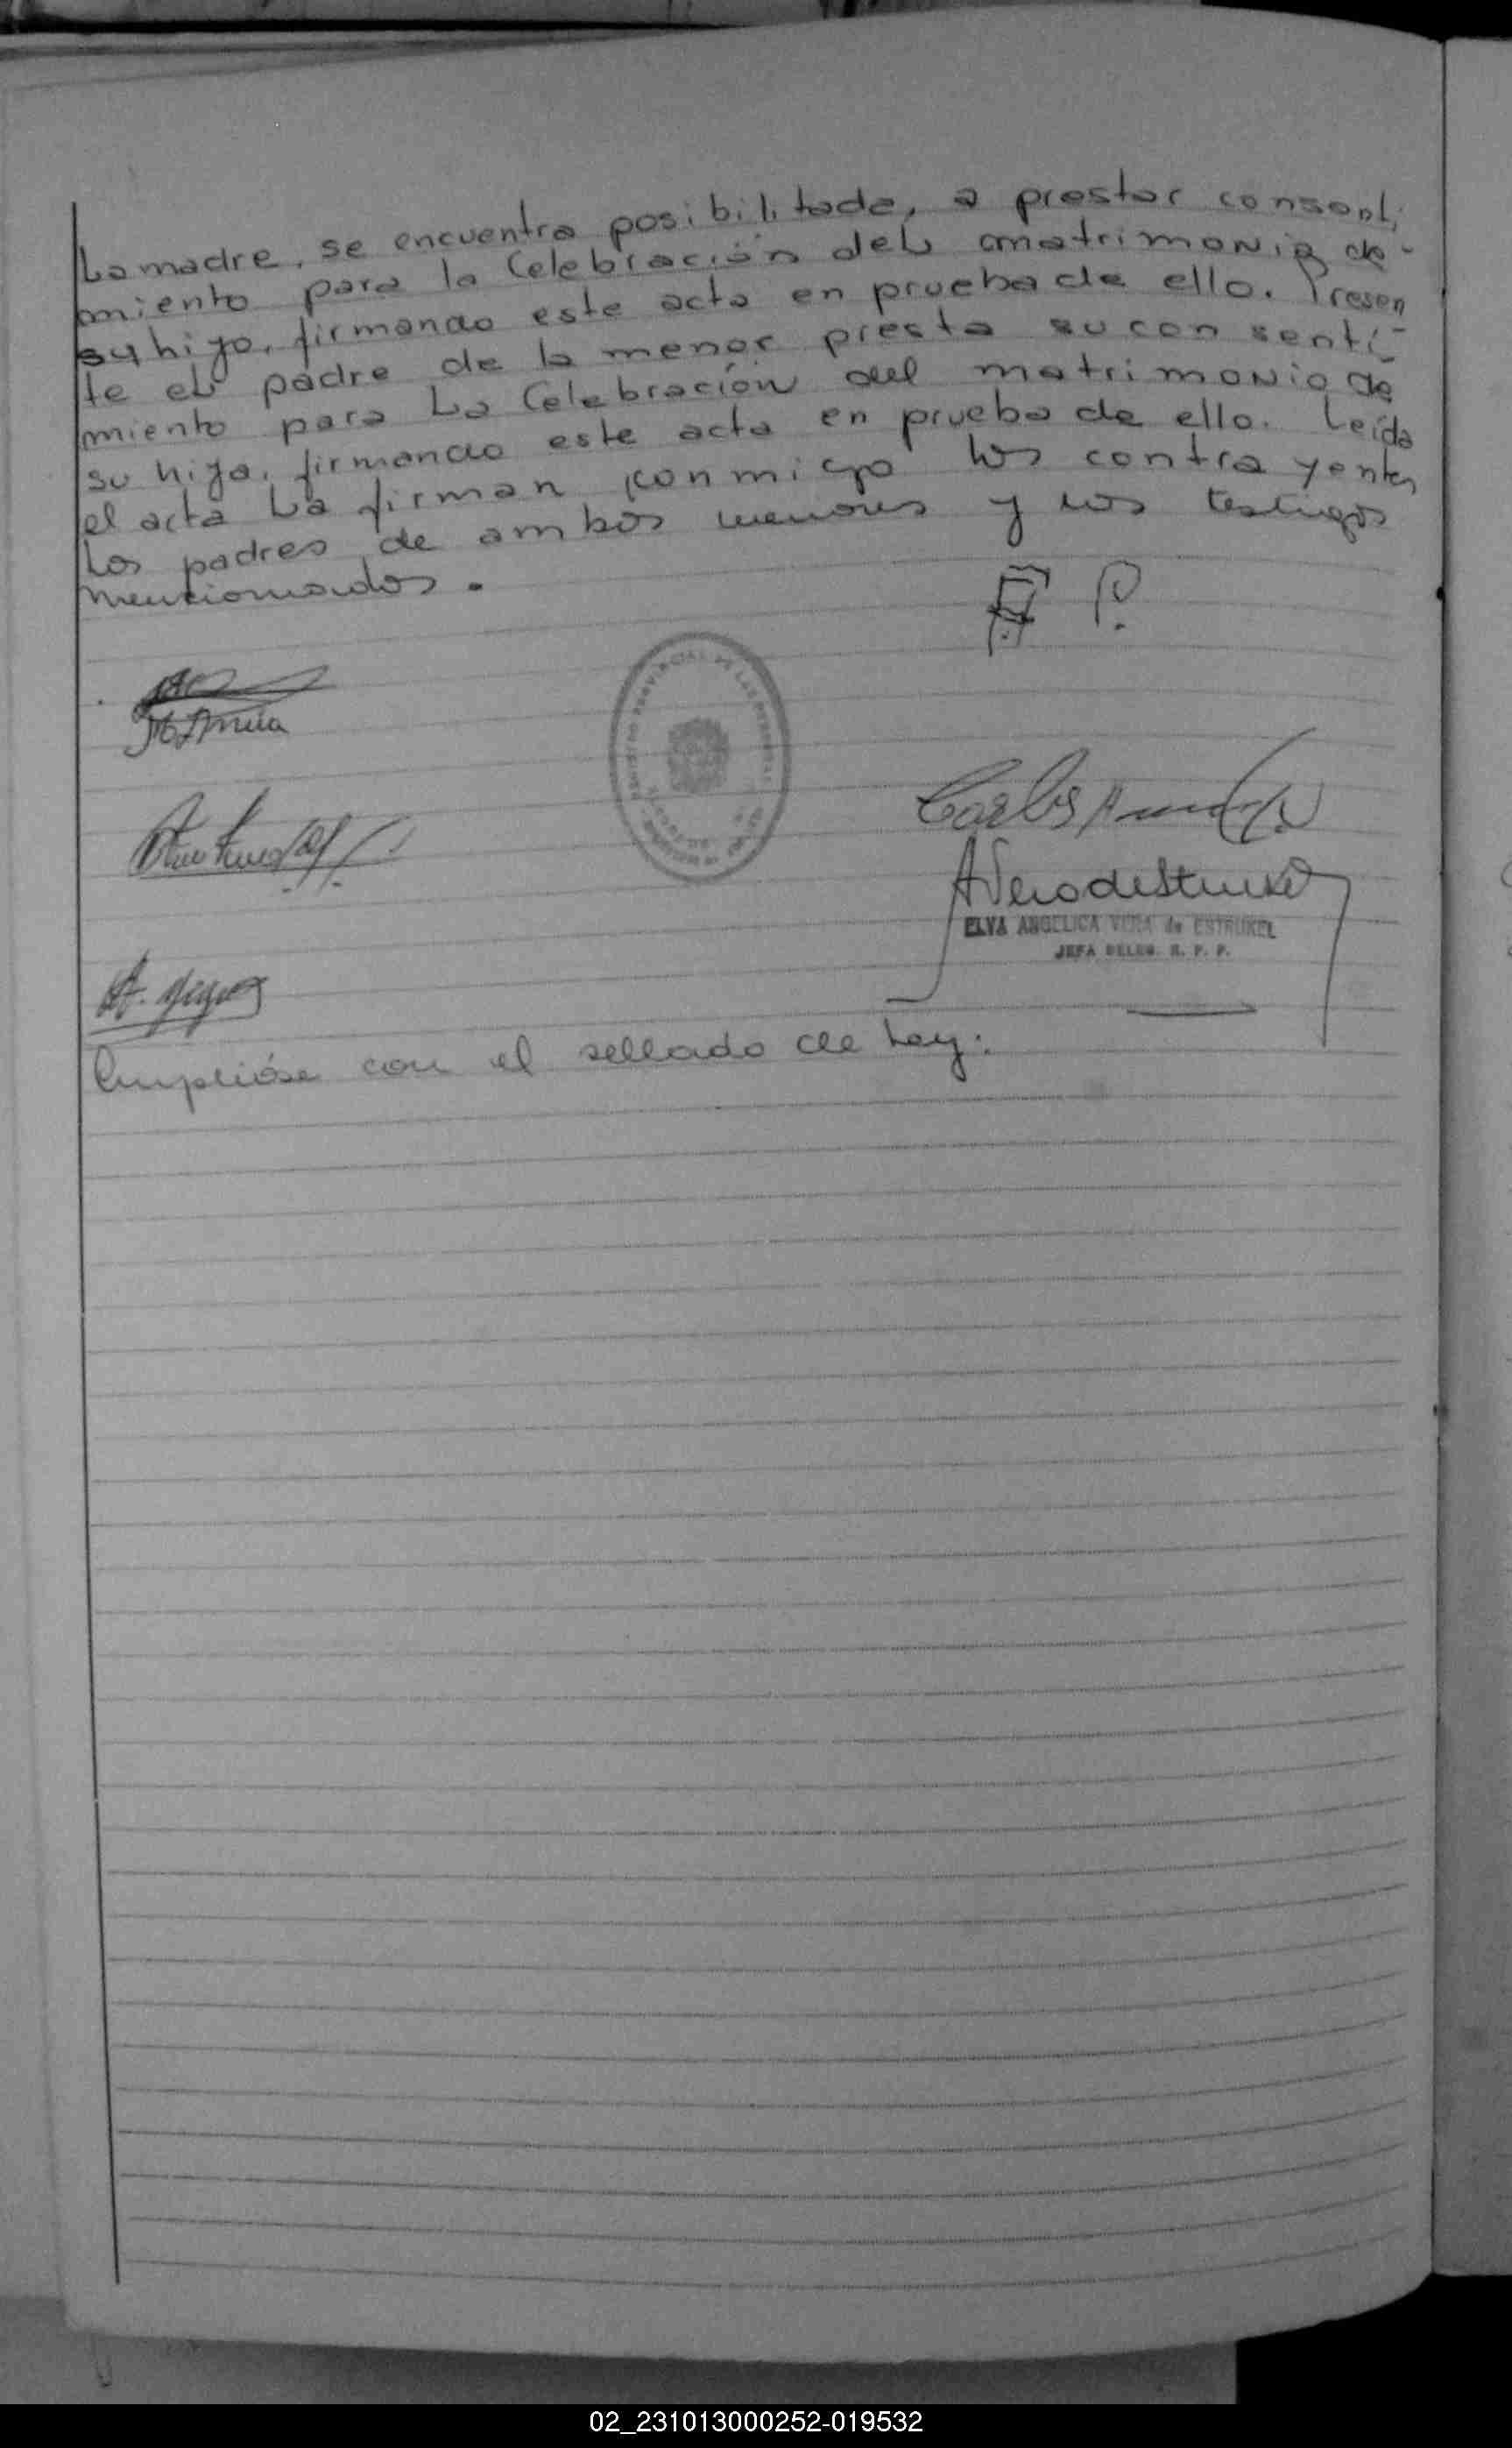 La madre, se encuentra posibilitada, a prestar consenti
miento para la Celebración del matrimonio de-
su hijo, firmando este acta en prueba de ello. Presen
te el padre de la menor presta su consenti-
miento para La Celebración del matrimonio de
su hija, firmando este acta en prueba de ello. Leída
el acta La firman conmigo los contrayentes
Los padres de ambos menores y los testigos
mencionados.
Carlos
AVeradeStrukel
ELVA ANGELICA VERA de ESTRUKEL
JEFA DELEG. R. P. P.
Cumplióse con el sellado de Ley:
02_231013000252-019532